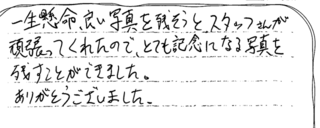 一生懸命、良い写真を残そうと、スタッフさんが
頑張ってくれたので、とても記念になる写真を
残すことができました。
ありがとうございました。